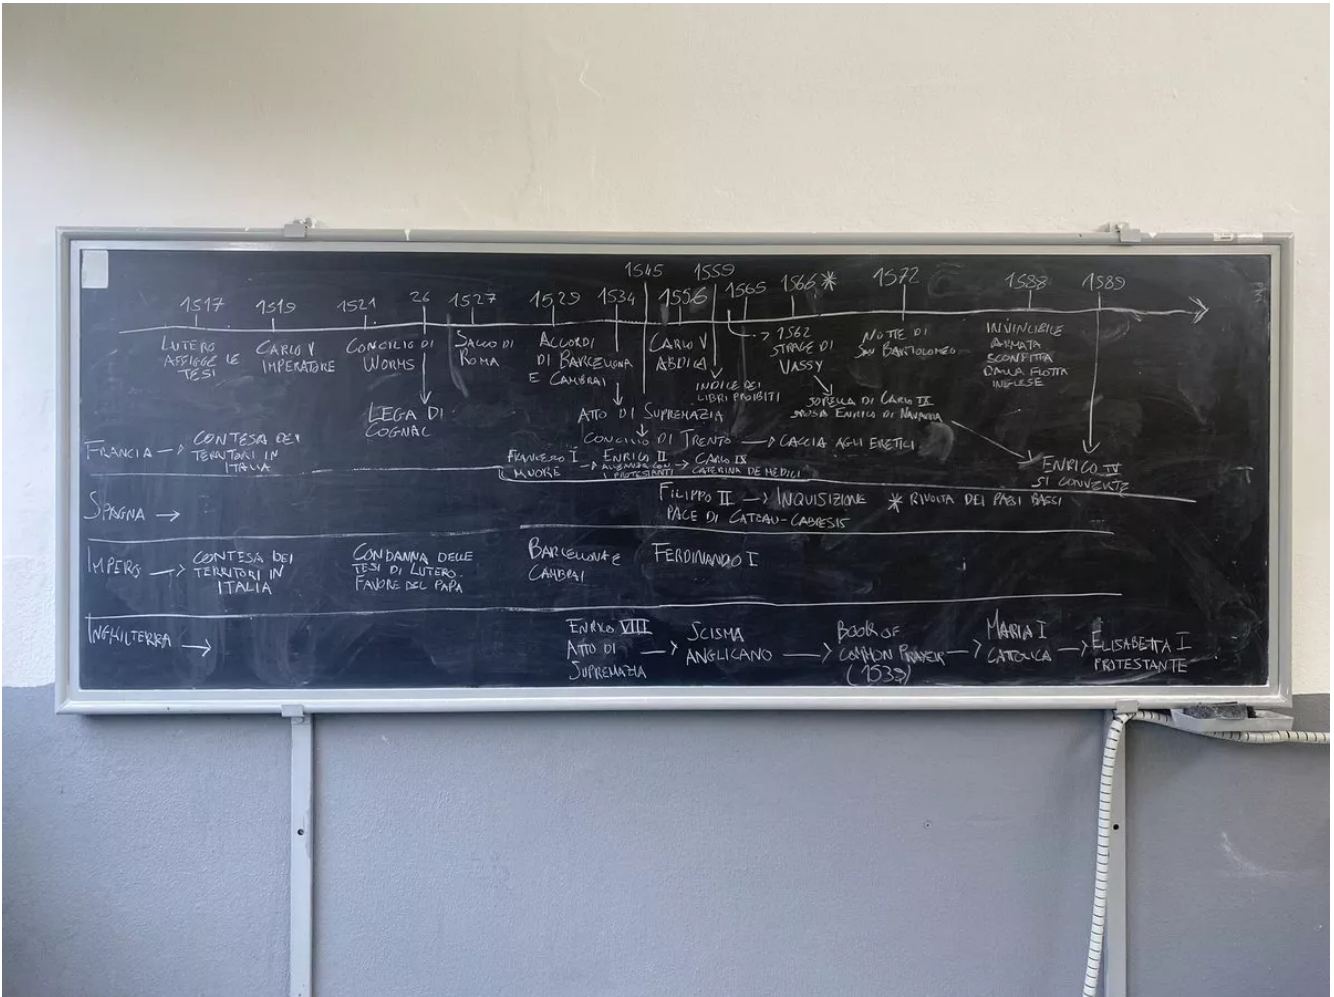 1545 1559
1517 1519 1521 26 1527 1529 1534 1556 1565 1566 * 1572 1588 1589
LUTERO
AFFIGGE LE
TESI
CARLO V
IMPERATORE
CONCILIO DI
WORMS
LEGA DI
COGNAC
SACCO DI
ROMA
ACCORDI
DI BARCELLONA
E CAMBRAI
ATTO DI SUPREMAZIA
CONCILIO DI TRENTO → CACCIA AGLI ERETICI
CARLO V
ABDICA
INDICE DEI
LIBRI PROIBITI
→ 1562
STRAGE DI
VASSY
SORELLA DI CARLO IX
SPOSA ENRICO DI NAVARRA
NOTTE DI
SAN BARTOLOMEO
INVINCIBILE
ARMATA
SCONFITTA
DALLA FLOTTA
INGLESE
ENRICO IV
SI CONVERTE
FRANCIA → CONTESA DEI
TERRITORI IN
ITALIA
FRANCESCO I
MUORE
→ ENRICO II
ALLEANZA CON
I PROTESTANTI
→ CARLO IX
CATERINA DE MEDICI
SPAGNA →
FILIPPO II → INQUISIZIONE * RIVOLTA DEI PAESI BASSI
PACE DI CATEAU-CABRESIS
IMPERO → CONTESA DEI
TERRITORI IN
ITALIA
CONDANNA DELLE
TESI DI LUTERO.
FAVORE DEL PAPA
BARCELLONA E
CAMBRAI
FERDINANDO I
INGHILTERRA →
ENRICO VIII
ATTO DI
SUPREMAZIA
→ SCISMA
ANGLICANO
→ BOOK OF
COMMON PRAYER
→ MARIA I
CATTOLICA
→ ELISABETTA I
PROTESTANTE